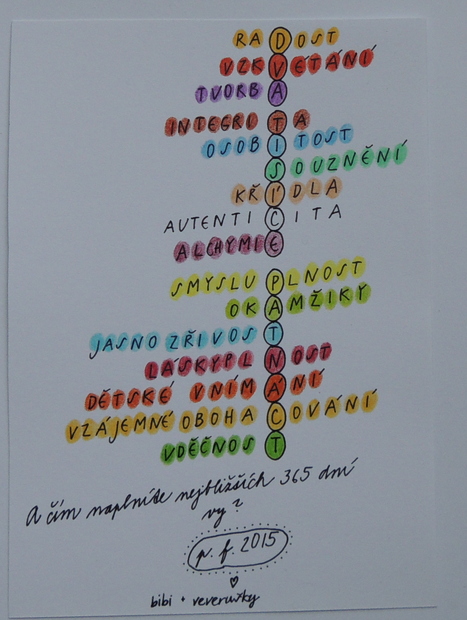 RADOST
VZKVÉTÁNÍ
TVORBA
INTEGRITA
OSOBITOST
SOUZNĚNÍ
KŘÍDLA
AUTENTICITA
ALCHYMIE
SMYSLUPLNOST
OKAMŽIKY
JASNOZŘIVOST
LÁSKYPLNOST
DĚTSKÉ VNÍMÁNÍ
VZÁJEMNÉ OBOHACOVÁNÍ
VDĚČNOST
A čím naplníte nejbližších 365 dní
vy?
p. f. 2015
bibi + veverušky